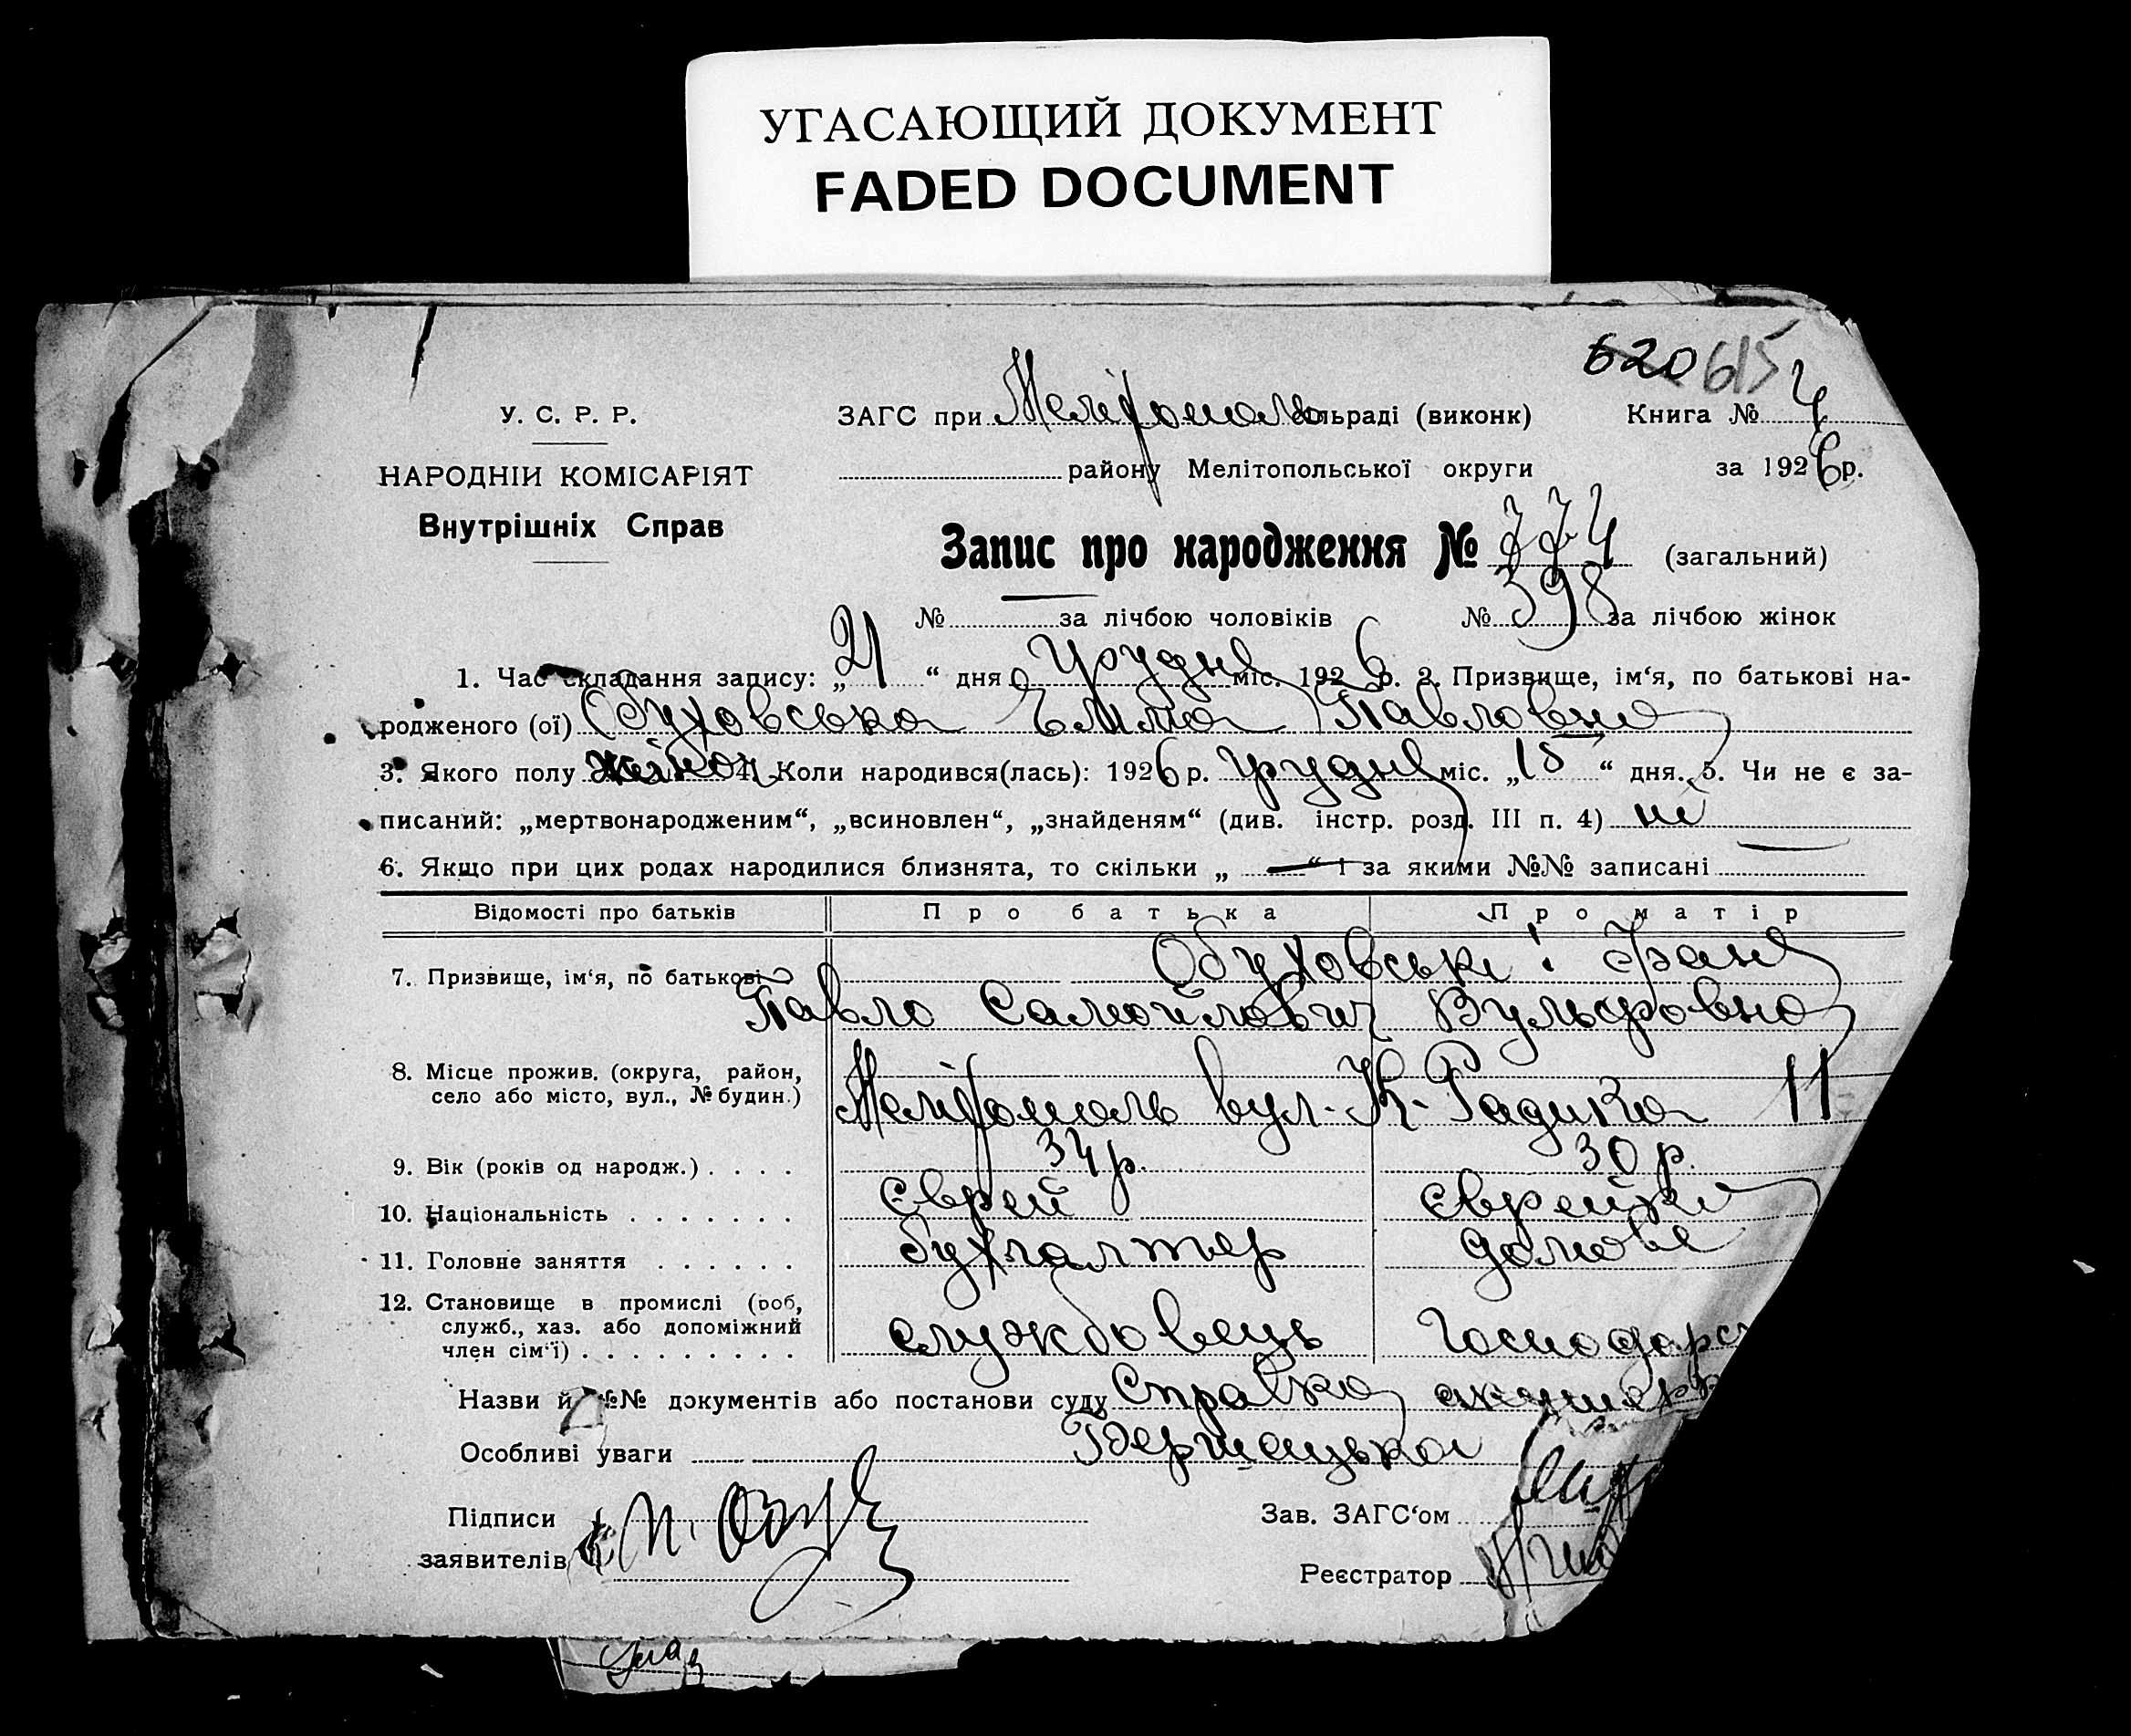 УГАСАЮЩИЙ ДОКУМЕНТ
FADED DOCUMENT
620 615
У. С. Р. Р.
ЗАГС при Мелітополь сільраді (виконк) Книга № 4
НАРОДНІЙ КОМІСАРІЯТ
району Мелітопольської округи за 1926 р.
Внутрішніх Справ
Запис про народження № 774 (загальний)
№ за лічбою чоловіків № 398 за лічбою жінок
1. Час складання запису: „21“ дня Грудня міс. 1926 р. 2. Призвище, ім‘я, по батькові на-
родженого (ої) Обуховська Емма Павловна
3. Якого полу жіноч 4. Коли народився(лась): 1926 р. грудня міс. „15“ дня. 5. Чи не є за-
писаний: „мертвонародженим“, „всиновлен“, „знайденям“ (див. інстр. розд. III п. 4) ні
6. Якщо при цих родах народилися близнята, то скільки „ — “ і за якими №№ записані
Відомості про батьків Про батька Про матір
7. Призвище, ім‘я, по батькові Обуховські і Фаня
Павло Самойлович Вульфовна
8. Місце прожив. (округа, район,
село або місто, вул., № будин.) Мелітополь вул. К. Радика 11
9. Вік (років од народж.) . . . . 34 р. 30 р.
10. Національність . . . . . . . Єврей Єврейка
11. Головне заняття . . . . . . бухгалтер домове
12. Становище в промислі (роб,
служб., хаз. або допоміжний
член сім‘ї) . . . . . . . . . службовець Господарст
Назви й №№ документів або постанови суду Справка акушерк
Особливі уваги
Підписи
Зав. ЗАГС‘ом
заявителів
Реєстратор